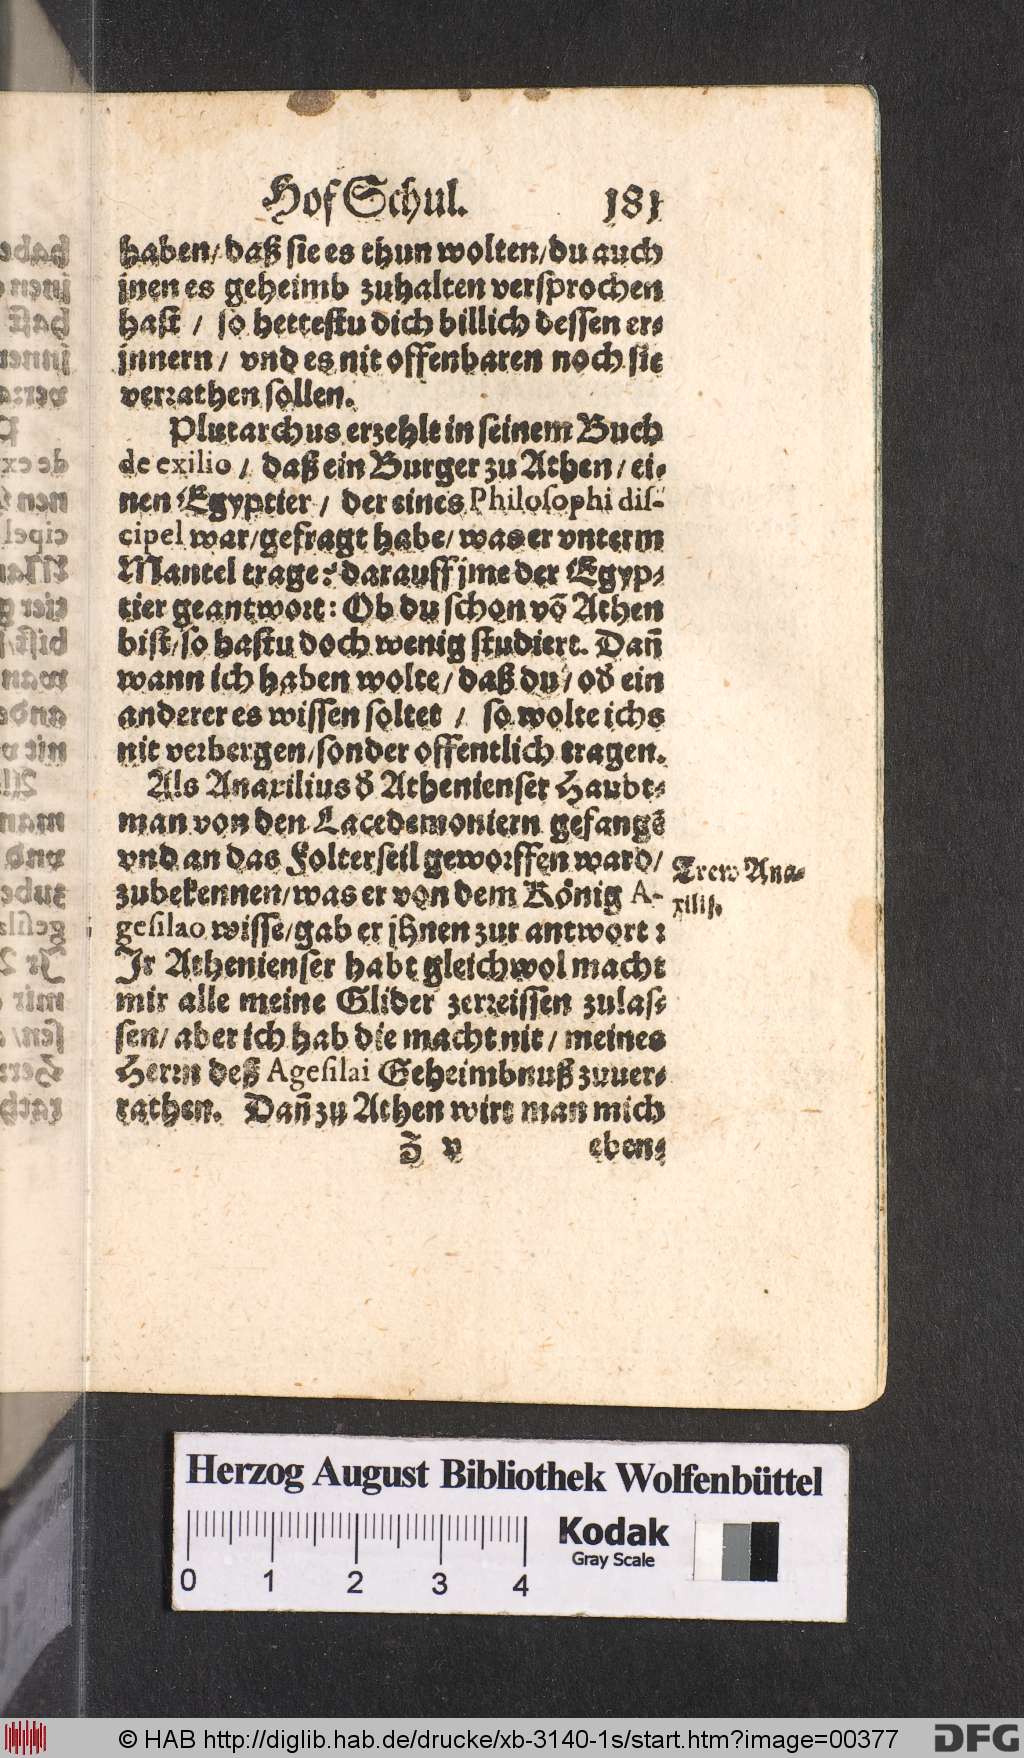 Hof Schul. 181
haben/ daß sie es thun wolten/ du auch
jnen es geheimb zuhalten versprochen
hast / so hettestu dich billich dessen er-
jnnern / vnd es nit offenbaren noch sie
verrathen sollen.
Plutarchus erzehlt in seinem Buch
de exilio / daß ein Burger zu Athen / ei-
nen Egyptier / der eines Philosophi dis-
cipel war/ gefragt habe/ was er vnterm
Mantel trage? darauff jme der Egyp-
tier geantwort: Ob du schon võ Athen
bist/ so hastu doch wenig studiert. Dañ
wann ich haben wolte/ daß du/ od̃ ein
anderer es wissen soltet / so wolte ichs
nit verbergen/ sonder offentlich tragen.
Als Anaxilius d̃ Athenienser Haubt-
man von den Lacedemoniern gefangẽ
vnd an das Folterseil geworffen ward/
zubekennen/ was er von dem König A-
gesilao wisse/ gab er jhnen zur antwort:
Jr Athenienser habt gleichwol macht
mir alle meine Glider zerreissen zulas-
sen/ aber ich hab die macht nit/ meines
Herrn deß Agesilai Geheimbnuß zuuer-
rathen. Dañ zu Athen wirt man mich
Z v eben-
Trew Ana-
xilij.
Herzog August Bibliothek Wolfenbüttel
Kodak
Gray Scale
0 1 2 3 4
© HAB http://diglib.hab.de/drucke/xb-3140-1s/start.htm?image=00377
DFG